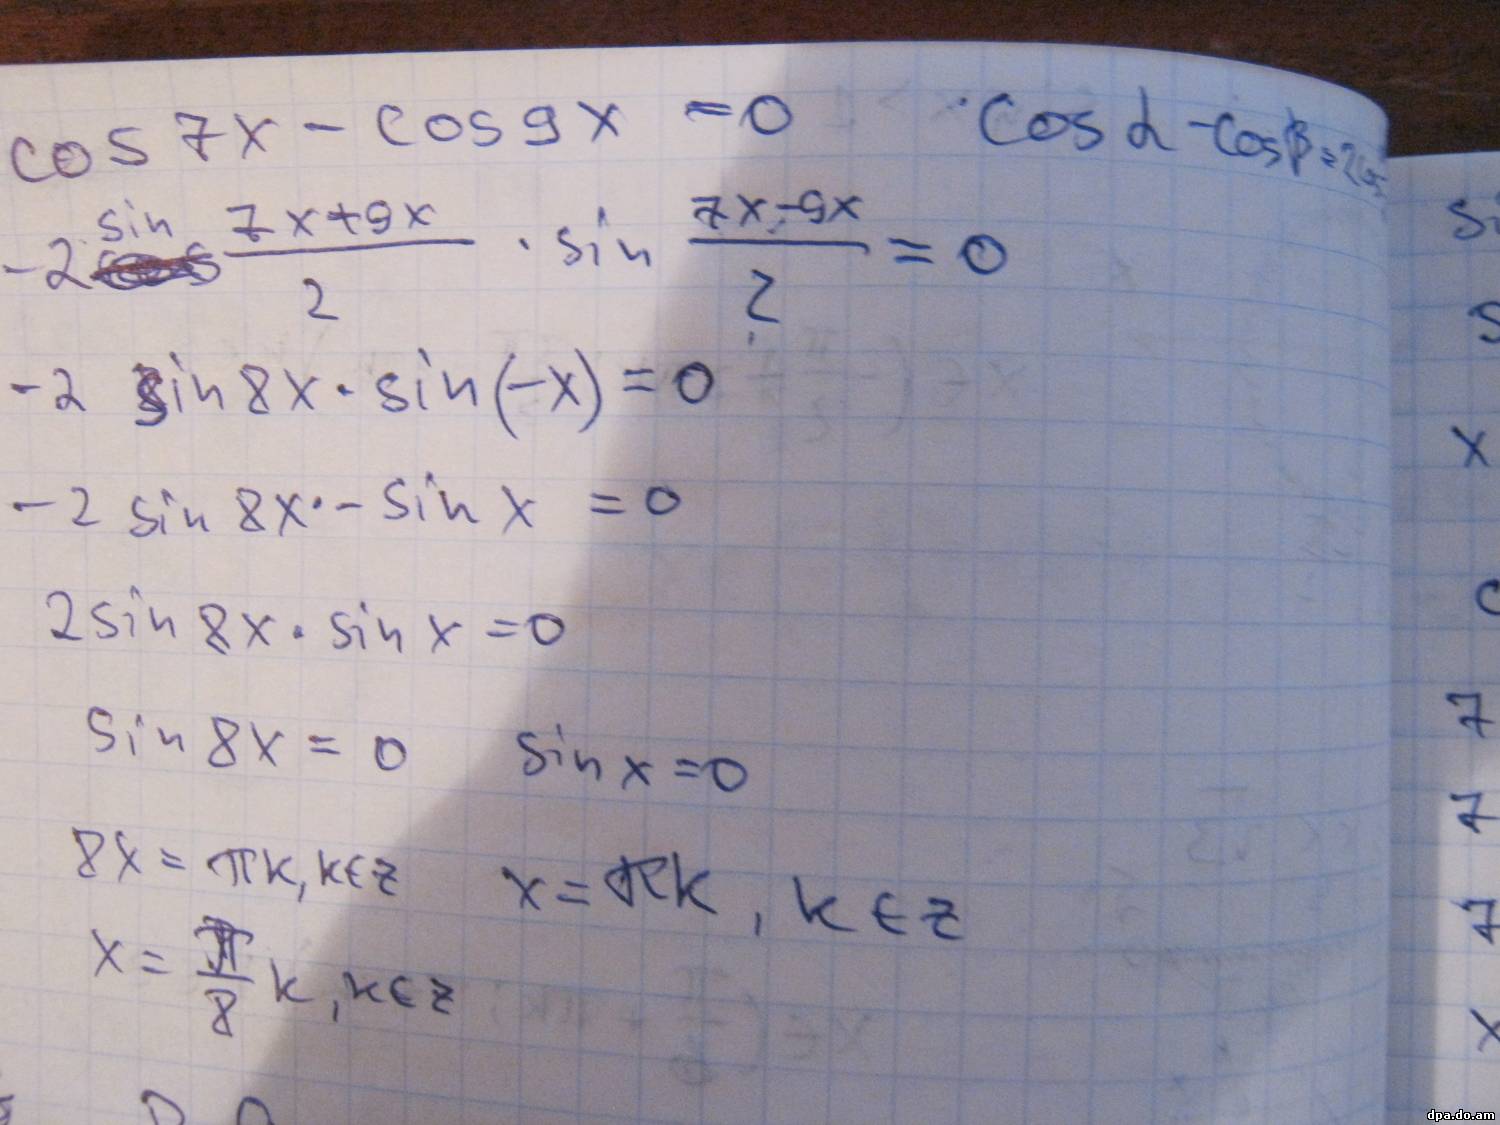 cos 7x - cos 9x = 0
cos α - cos β = 2cos
-2 sin (7x+9x)/2 · sin (7x-9x)/2 = 0
-2 sin 8x · sin(-x) = 0
-2 sin 8x · - sin x = 0
2 sin 8x · sin x = 0
sin 8x = 0 sin x = 0
8x = πk, k∈z x = πk, k∈z
x = π/8 k, k∈z
si
s
x
c
7
7
7
x
dpa.do.am